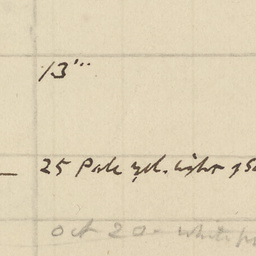 13'''
25 Pale yel. light of S
Oct 20 - white